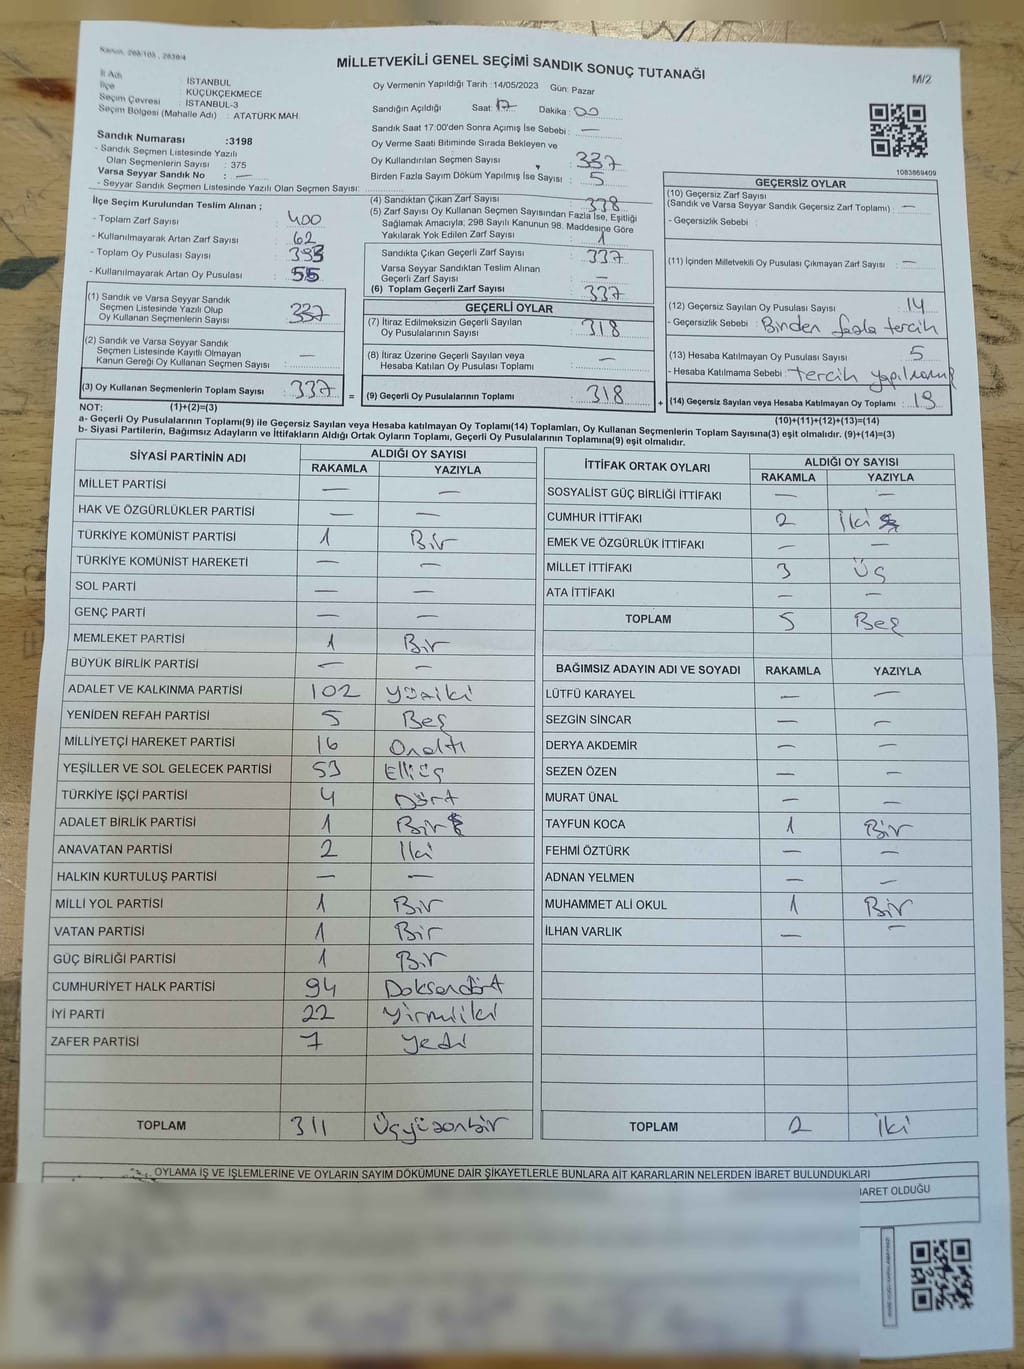 MİLLETVEKİLİ GENEL SEÇİMİ SANDIK SONUÇ TUTANAĞI
M/2
İl Adı İSTANBUL
İlçe KÜÇÜKÇEKMECE
Seçim Çevresi : İSTANBUL-3
Seçim Bölgesi (Mahalle Adı) : ATATÜRK MAH.
Oy Vermenin Yapıldığı Tarih : 14/05/2023 Gün: Pazar
Sandığın Açıldığı Saat: 17 Dakika : 00
Sandık Saat 17:00'den Sonra Açımış İse Sebebi : —
Oy Verme Saati Bitiminde Sırada Bekleyen ve
Oy Kullandırılan Seçmen Sayısı : 337
Birden Fazla Sayım Döküm Yapılmış İse Sayısı : 5
Sandık Numarası :3198
- Sandık Seçmen Listesinde Yazılı
Olan Seçmenlerin Sayısı : 375
Varsa Seyyar Sandık No : —
- Seyyar Sandık Seçmen Listesinde Yazılı Olan Seçmen Sayısı:
1083869409
İlçe Seçim Kurulundan Teslim Alınan ;
- Toplam Zarf Sayısı : 400
- Kullanılmayarak Artan Zarf Sayısı : 62
- Toplam Oy Pusulası Sayısı : 393
- Kullanılmayarak Artan Oy Pusulası : 55
(1) Sandık ve Varsa Seyyar Sandık
Seçmen Listesinde Yazılı Olup
Oy Kullanan Seçmenlerin Sayısı : 337
(2) Sandık ve Varsa Seyyar Sandık
Seçmen Listesinde Kayıtlı Olmayan
Kanun Gereği Oy Kullanan Seçmen Sayısı : —
(3) Oy Kullanan Seçmenlerin Toplam Sayısı : 337 =
(4) Sandıktan Çıkan Zarf Sayısı : 338
(5) Zarf Sayısı Oy Kullanan Seçmen Sayısından Fazla İse, Eşitliği
Sağlamak Amacıyla, 298 Sayılı Kanunun 98. Maddesine Göre
Yakılarak Yok Edilen Zarf Sayısı : 1
Sandıkta Çıkan Geçerli Zarf Sayısı : 337
Varsa Seyyar Sandıktan Teslim Alınan
Geçerli Zarf Sayısı : —
(6) Toplam Geçerli Zarf Sayısı : 337
GEÇERLİ OYLAR
(7) İtiraz Edilmeksizin Geçerli Sayılan
Oy Pusulalarının Sayısı : 318
(8) İtiraz Üzerine Geçerli Sayılan veya
Hesaba Katılan Oy Pusulası Toplamı : —
(9) Geçerli Oy Pusulalarının Toplamı : 318 +
GEÇERSİZ OYLAR
(10) Geçersiz Zarf Sayısı
(Sandık ve Varsa Seyyar Sandık Geçersiz Zarf Toplamı) : —
- Geçersizlik Sebebi :
(11) İçinden Milletvekili Oy Pusulası Çıkmayan Zarf Sayısı : —
(12) Geçersiz Sayılan Oy Pusulası Sayısı : 14
- Geçersizlik Sebebi : Binden fazla tercih
(13) Hesaba Katılmayan Oy Pusulası Sayısı : 5
- Hesaba Katılmama Sebebi : tercih
(14) Geçersiz Sayılan veya Hesaba Katılmayan Oy Toplamı : 19
NOT: (1)+(2)=(3)
(10)+(11)+(12)+(13)=(14)
a- Geçerli Oy Pusulaları Toplamı(9) ile Geçersiz Sayılan veya Hesaba katılmayan Oy Toplamı(14) Toplamları, Oy Kullanan Seçmenlerin Toplam Sayısına(3) eşit olmalıdır. (9)+(14)=(3)
b- Siyasi Partilerin, Bağımsız Adayların ve İttifakların Aldığı Ortak Oyların Toplamı, Geçerli Oy Pusulalarının Toplamına(9) eşit olmalıdır.
SİYASİ PARTİNİN ADI ALDIĞI OY SAYISI
RAKAMLA YAZIYLA
MİLLET PARTİSİ — —
HAK VE ÖZGÜRLÜKLER PARTİSİ — —
TÜRKİYE KOMÜNİST PARTİSİ 1 Bir
TÜRKİYE KOMÜNİST HAREKETİ — —
SOL PARTİ — —
GENÇ PARTİ — —
MEMLEKET PARTİSİ 1 Bir
BÜYÜK BİRLİK PARTİSİ — —
ADALET VE KALKINMA PARTİSİ 102 yüziki
YENİDEN REFAH PARTİSİ 5 Beş
MİLLİYETÇİ HAREKET PARTİSİ 16 Onaltı
YEŞİLLER VE SOL GELECEK PARTİSİ 53 Elliüç
TÜRKİYE İŞÇİ PARTİSİ 4 Dört
ADALET BİRLİK PARTİSİ 1 Bir
ANAVATAN PARTİSİ 2 İki
HALKIN KURTULUŞ PARTİSİ — —
MİLLİ YOL PARTİSİ 1 Bir
VATAN PARTİSİ 1 Bir
GÜÇ BİRLİĞİ PARTİSİ 1 Bir
CUMHURİYET HALK PARTİSİ 94 Doksandört
İYİ PARTİ 22 yirmiiki
ZAFER PARTİSİ 7 yedi
TOPLAM 311 Üçyüzonbir
İTTİFAK ORTAK OYLARI ALDIĞI OY SAYISI
RAKAMLA YAZIYLA
SOSYALİST GÜÇ BİRLİĞİ İTTİFAKI — —
CUMHUR İTTİFAKI 2 İki
EMEK VE ÖZGÜRLÜK İTTİFAKI — —
MİLLET İTTİFAKI 3 Üç
ATA İTTİFAKI — —
TOPLAM 5 Beş
BAĞIMSIZ ADAYIN ADI VE SOYADI RAKAMLA YAZIYLA
LÜTFÜ KARAYEL — —
SEZGİN SİNCAR — —
DERYA AKDEMİR — —
SEZEN ÖZEN — —
MURAT ÜNAL — —
TAYFUN KOCA 1 Bir
FEHMİ ÖZTÜRK — —
ADNAN YELMEN — —
MUHAMMET ALİ OKUL 1 Bir
İLHAN VARLIK — —
TOPLAM 2 İki
OYLAMA İŞ VE İŞLEMLERİNE VE OYLARIN SAYIM DÖKÜMÜNE DAİR ŞİKAYETLERLE BUNLARA AİT KARARLARIN NELERDEN İBARET BULUNDUKLARI
İBARET OLDUĞU